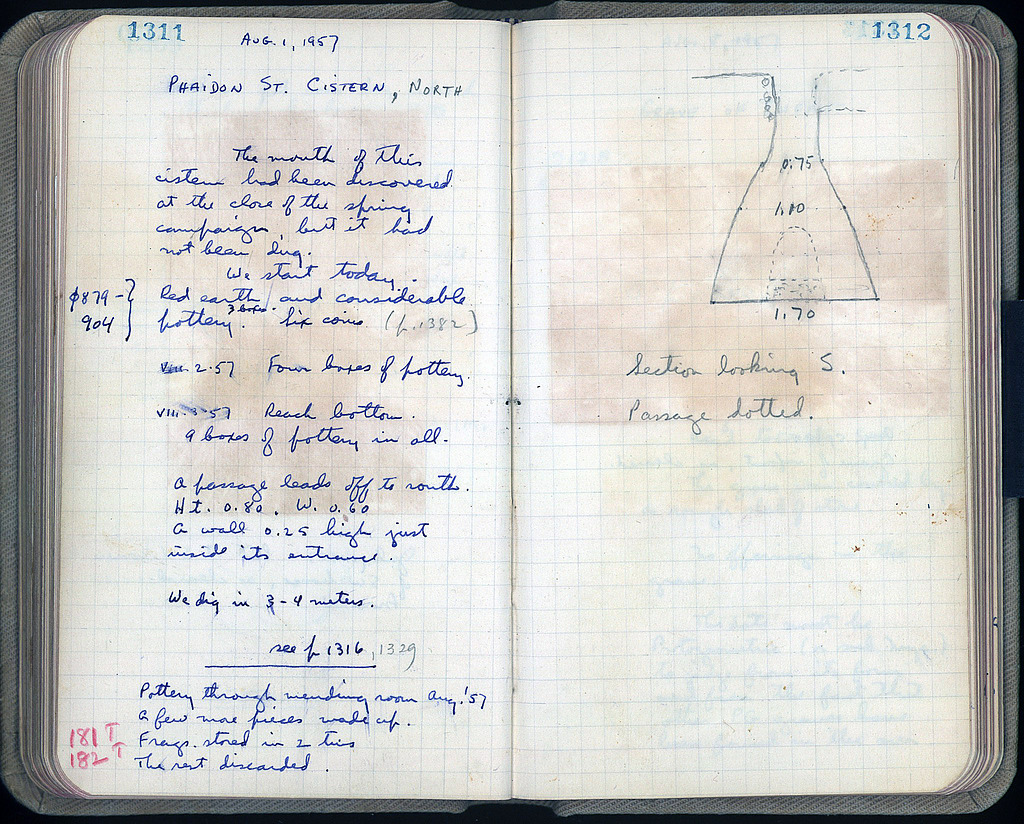 1311
AUG. 1, 1957
PHAIDON ST. CISTERN, NORTH
The mouth of this
cistern had been discovered
at the close of the spring
campaign, but it had
not been dug.
We start today.
ϕ879 - Red earth and considerable
904 pottery. 3 boxes. Six coins (p. 1382)
VIII·2·57 Four boxes of pottery.
VIII·3·57 Reach bottom.
9 boxes of pottery in all.
A passage leads off to south.
Ht. 0.80. W. 0.60
A wall 0.25 high just
inside its entrance.
We dig in 3-4 meters.
see p 1316, 1329
Pottery through mending room Aug. '57
A few more pieces made up.
181 T Frags. stored in 2 tins
182 T The rest discarded.
1312
0.75
1.10
1.70
Section looking S.
Passage dotted.